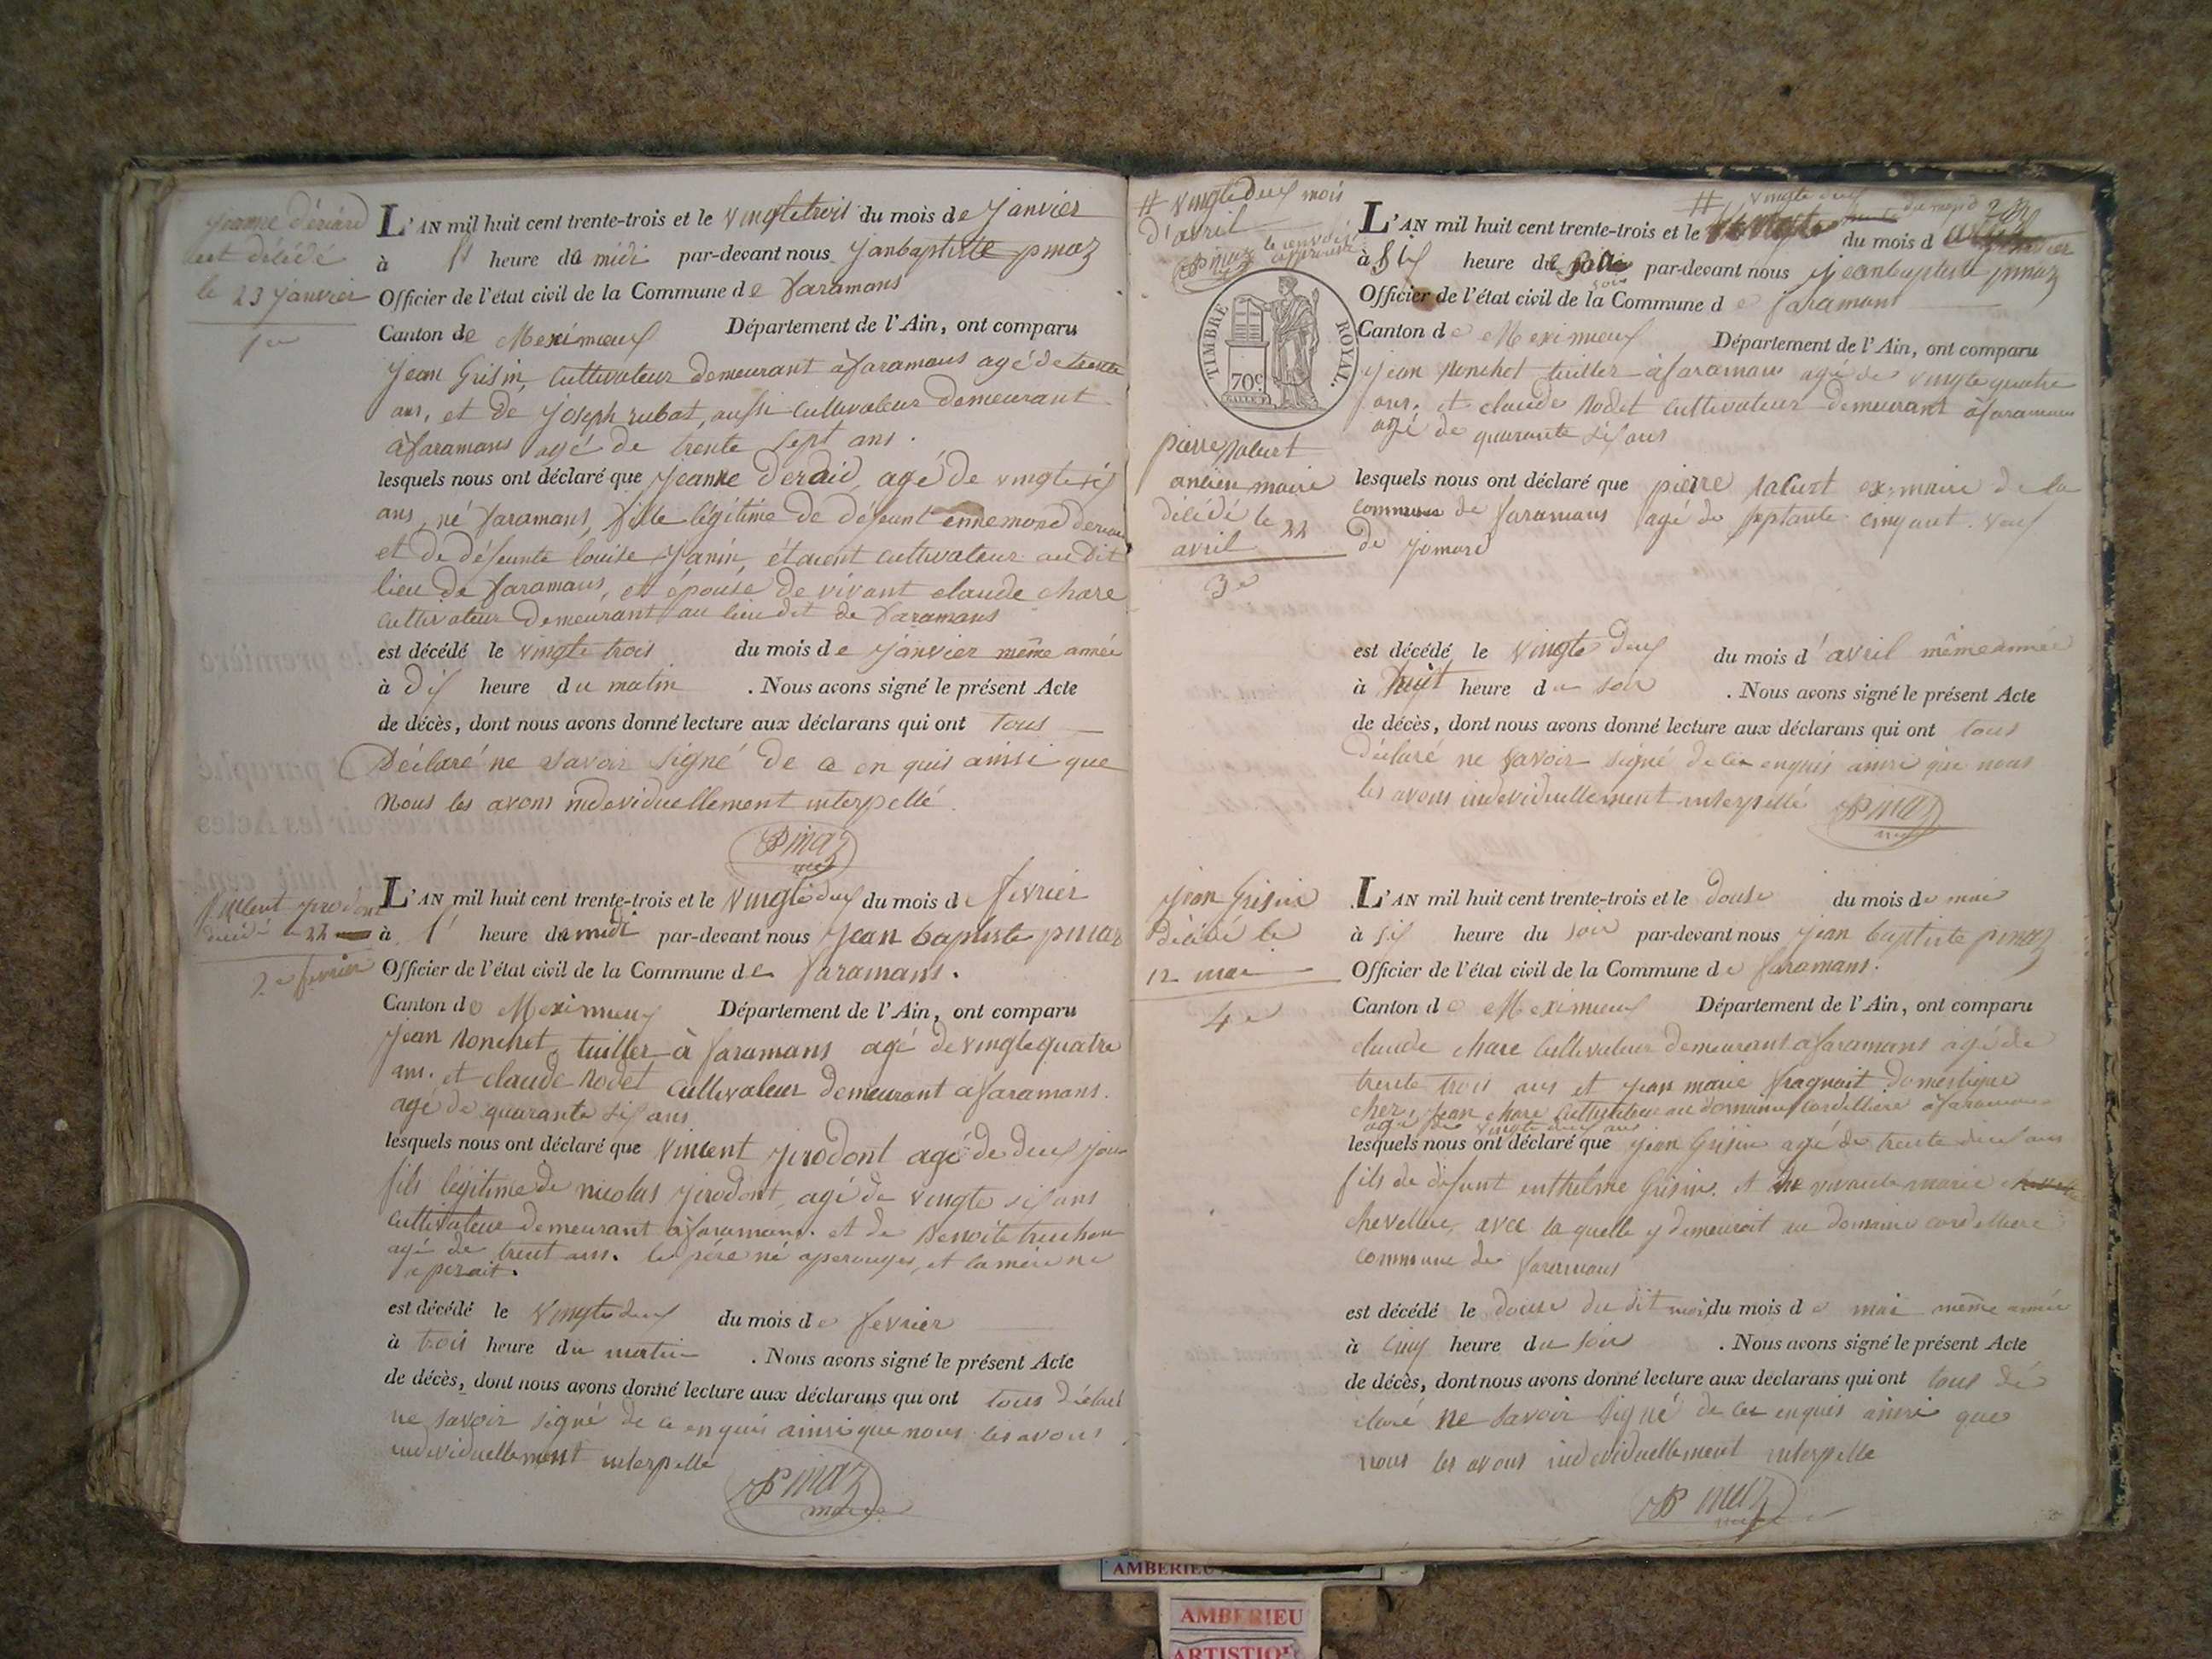 Jeanne déraid
est délédé
le 23 Janvier
1er
L'AN mil huit cent trente-trois et le vingtetrois du mois de Janvier
à 1' heure du midi par-devant nous Janbaptiste pmaz
Officier de l'état civil de la Commune de faramans
Canton de Meximeux Département de l'Ain, ont comparu
Jean Grisin, Cultivateur demeurant àfaramans agé de trente
ans, et de joseph rubat, aussi Cultivateur demeurant
àfaramans agé de trente sept ans.
lesquels nous ont déclaré que Jeanne deraid, agé de vingtesix
ans, né faramans, fille légitime de défeunt ennemond
et de défeunte louise Janin, étaient cultivateur audit
lieu de faramans, et épouse de vivant claude chare
cultivateur demeurant au lieu dit de faramans
est décédé le vingte trois du mois de janvier même année
à dix heure du matin . Nous avons signé le présent Acte
de décès, dont nous avons donné lecture aux déclarans qui ont tous
Déclaré ne savoir signé de ce en quis ainsi que
Nous les avons individuellement interpellé.
JB pmaz
Vincent jirodont
décédé le 22
2e fevrier
L'AN mil huit cent trente-trois et le vingtedeux du mois de fevrier
à 1' heure du midi par-devant nous Jean baptiste pmaz
Officier de l'état civil de la Commune de faramans.
Canton de Meximeux Département de l'Ain, ont comparu
Jean Ronchet, tuillier à faramans agé de vingtequatre
ans. et claude Rodet cultivateur demeurant àfaramans.
age de quarante six ans
lesquels nous ont déclaré que Vincent jirodont agé de deux jour
fils légitime de nicolas jirodont, agé de vingte six ans
cultivateur demeurant àfaramans. et de Benoite
agé de trent ans. le père né aperouges, et la mère né
est décédé le vingtedeux du mois de fevrier
à trois heure du matin . Nous avons signé le présent Acte
de décès, dont nous avons donné lecture aux déclarans qui ont tous déclaré
ne savoir signé de ce enquis ainsi que nous les avons
individuellement interpellé
JB pmaz
maire
# vingtedeux mois
d'avril
JB pmaz le renvois approuvé
# vingte deux du mois d
L'AN mil huit cent trente-trois et le du mois d
à six heure du soir par-devant nous Jeanbaptiste pmaz
Officier de l'état civil de la Commune de faramans
Canton de Meximeux Département de l'Ain, ont comparu
TIMBRE ROYAL.
70c
jean Ronchet tuillier àfaramans agé de vingtequatre
ans. et claude Rodet cultivateur demeurant àfaramans
agé de quarante six ans
pierre
ancien maire
délédé le 22
avril
3e
lesquels nous ont déclaré que pierre ex. maire de la
commune de faramans agé de septante cinq ant. veuf
de
est décédé le vingte deux du mois d'avril même année
à huit heure du soir . Nous avons signé le présent Acte
de décès, dont nous avons donné lecture aux déclarans qui ont tous
déclaré ne savoir signé de ce enquis ainsi que nous
les avons individuellement interpellé JB pmaz
jean Grisin
décédé le
12 mai
4e
L'AN mil huit cent trente-trois et le douse du mois de mai
à six heure du soir par-devant nous jean baptiste pmaz
Officier de l'état civil de la Commune de faramans.
Canton de Meximeux Département de l'Ain, ont comparu
claude chare cultivateur demeurant afaramans agé de
trente trois ans et jean marie fragnait domestique
cher, jean chare cultivateur au domaine cordelliere àfaramans
agé de vingte deux ans
lesquels nous ont déclaré que jean Grisin agé de trente deux ans
fils de défunt enthelme Grisin. et de vivante marie
chevelleu, avec la quelle y demeuroit au domaine cordelliere
commune de faramans
est décédé le douse du dit mois du mois de mai même année
à cinq heure du soir . Nous avons signé le présent Acte
de décès, dont nous avons donné lecture aux déclarans qui ont tous dé
claré ne savoir signé de ce enquis ainsi que
nous les avons individuellement interpellé
JB pmaz
AMBERIEU
AMBERIEU
ARTISTIQUE